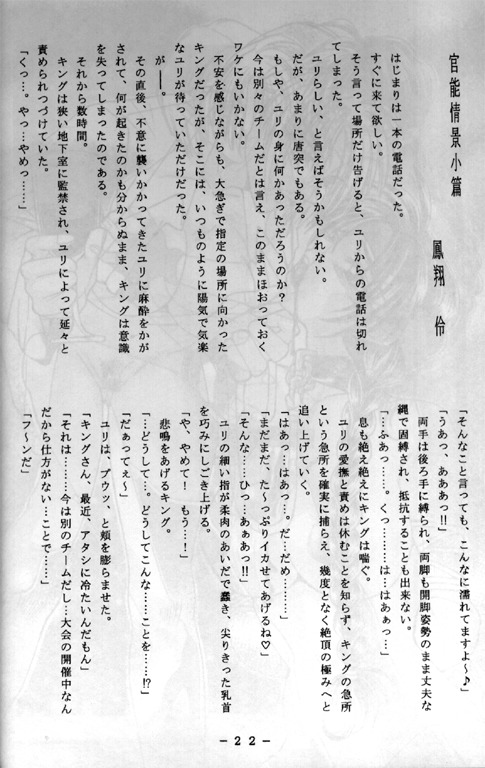 官能情景小篇
鳳翔 伶
はじまりは一本の電話だった。
すぐに来て欲しい。
そう言って場所だけ告げると、ユリからの電話は切れ
てしまった。
ユリらしい、と言えばそうかもしれない。
だが、あまりに唐突でもある。
もしや、ユリの身に何かあっただろうのか?
今は別々のチームだとは言え、このままほおっておく
ワケにもいかない。
不安を感じながらも、大急ぎで指定の場所に向かった
キングだったが、そこには、いつものように陽気で気楽
なユリが待っていただけだった。
が――。
その直後、不意に襲いかかってきたユリに麻酔をかが
されて、何が起きたのかも分からぬまま、キングは意識
を失ってしまったのである。
それから数時間。
キングは狭い地下室に監禁され、ユリによって延々と
責められつづけていた。
「くっ…。やっ…やめっ……」
「そんなこと言っても、こんなに濡れてますよ〜♪」
「うあっ、あああっ!!」
両手は後ろ手に縛られ、両脚も開脚姿勢のまま丈夫な
縄で固縛され、抵抗することも出来ない。
「…ふあっ……。くっ………は…はあぁっ…」
息も絶え絶えにキングは喘ぐ。
ユリの愛撫と責めは休むことを知らず、キングの急所
という急所を確実に捕らえ、幾度となく絶頂の極みへと
追い上げていく。
「はあっ…はあっ…。だ…だめ………」
「まだまだ、た〜っぷりイカせてあげるね♡」
「そんな……ひっ…あぁあっ!!」
ユリの細い指が柔肉のあいだで蠢き、尖りきった乳首
を巧みにしごき上げる。
「や、やめて! もう…!」
悲鳴をあげるキング。
「…どうして…。どうしてこんな……ことを……!?」
「だぁってぇ〜」
ユリは、プウッ、と頬を膨らませた。
「キングさん、最近、アタシに冷たいんだもん」
「それは………今は別のチームだし…大会の開催中なん
だから仕方がない…ことで……」
「フ〜ンだ」
－22－